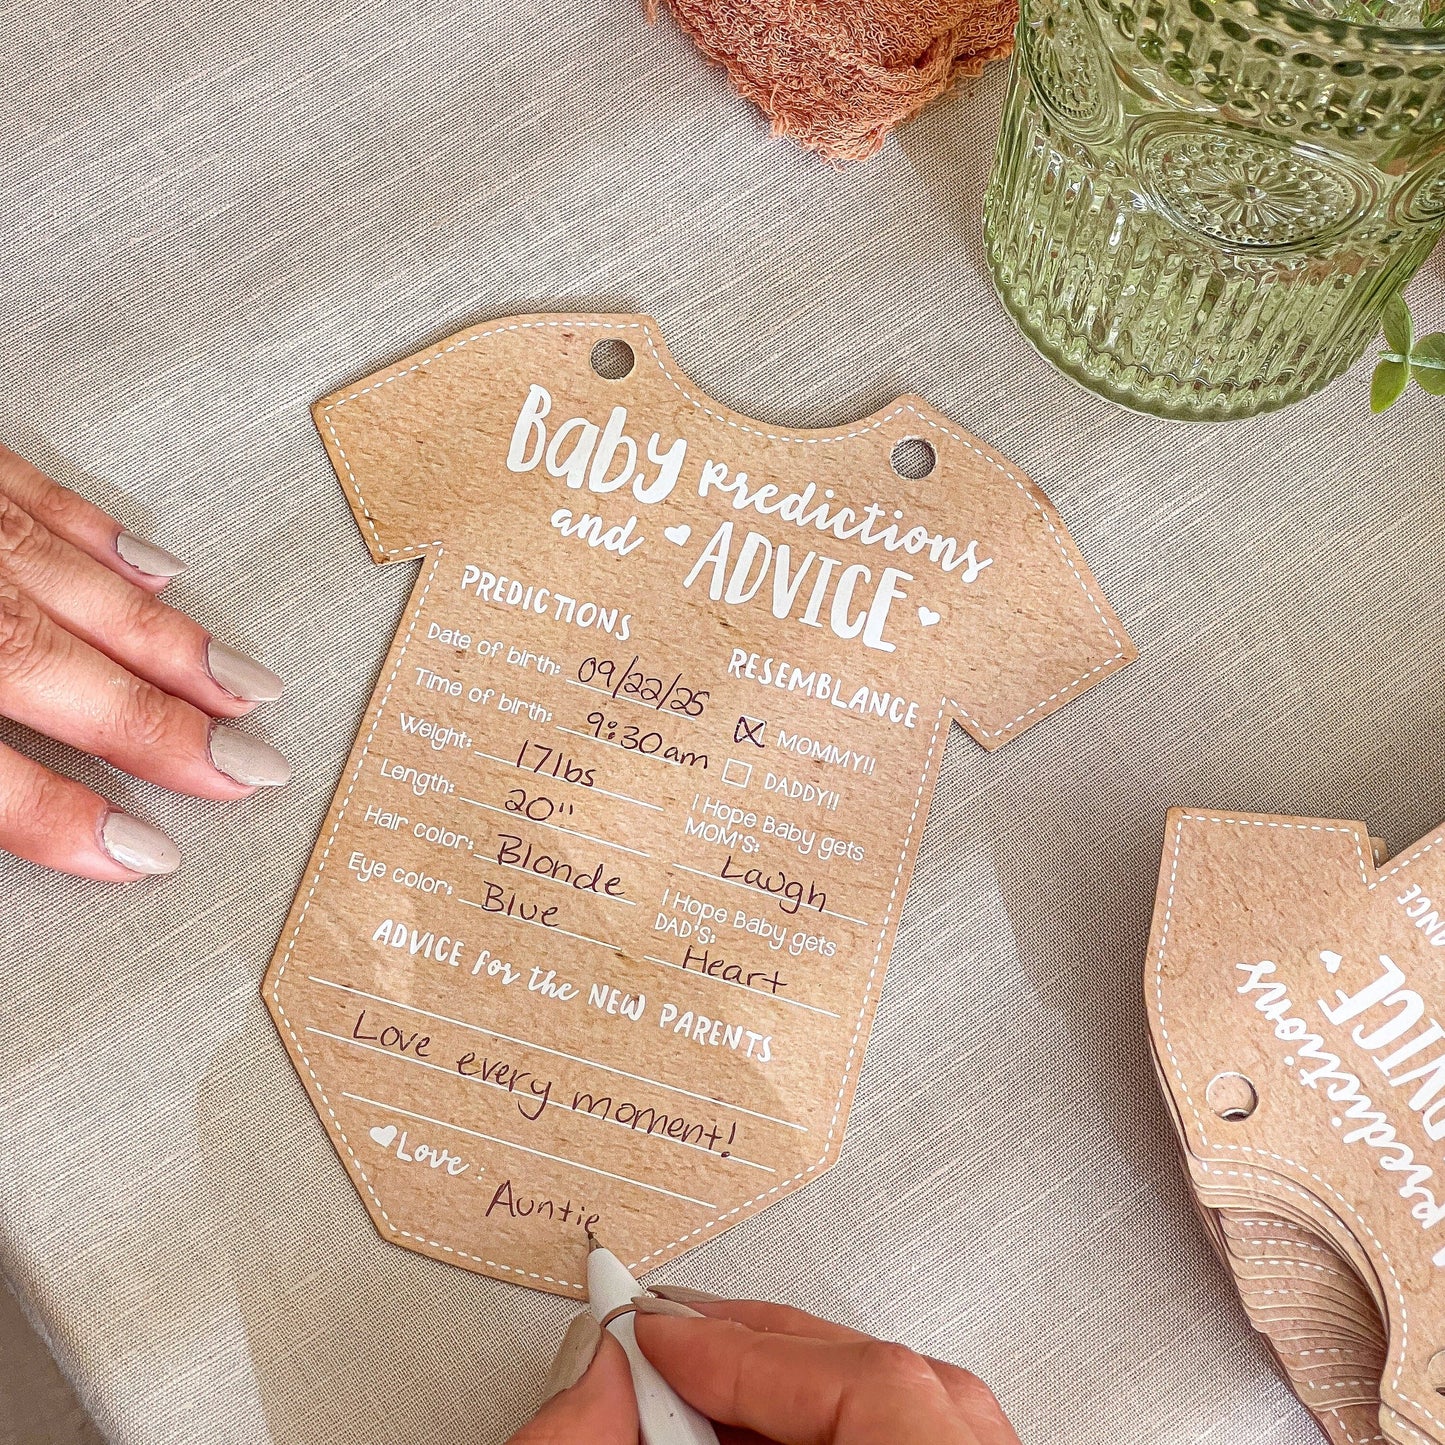 Baby predictions
and ADVICE
PREDICTIONS
Date of birth: 09/22/25
Time of birth: 9:30am
Weight: 17lbs
Length: 20"
Hair color: Blonde
Eye color: Blue
RESEMBLANCE
MOMMY!!
DADDY!!
I Hope Baby gets
MOM'S: Laugh
I Hope Baby gets
DAD'S: Heart
ADVICE for the NEW PARENTS
Love every moment!
Love: Auntie
predictions